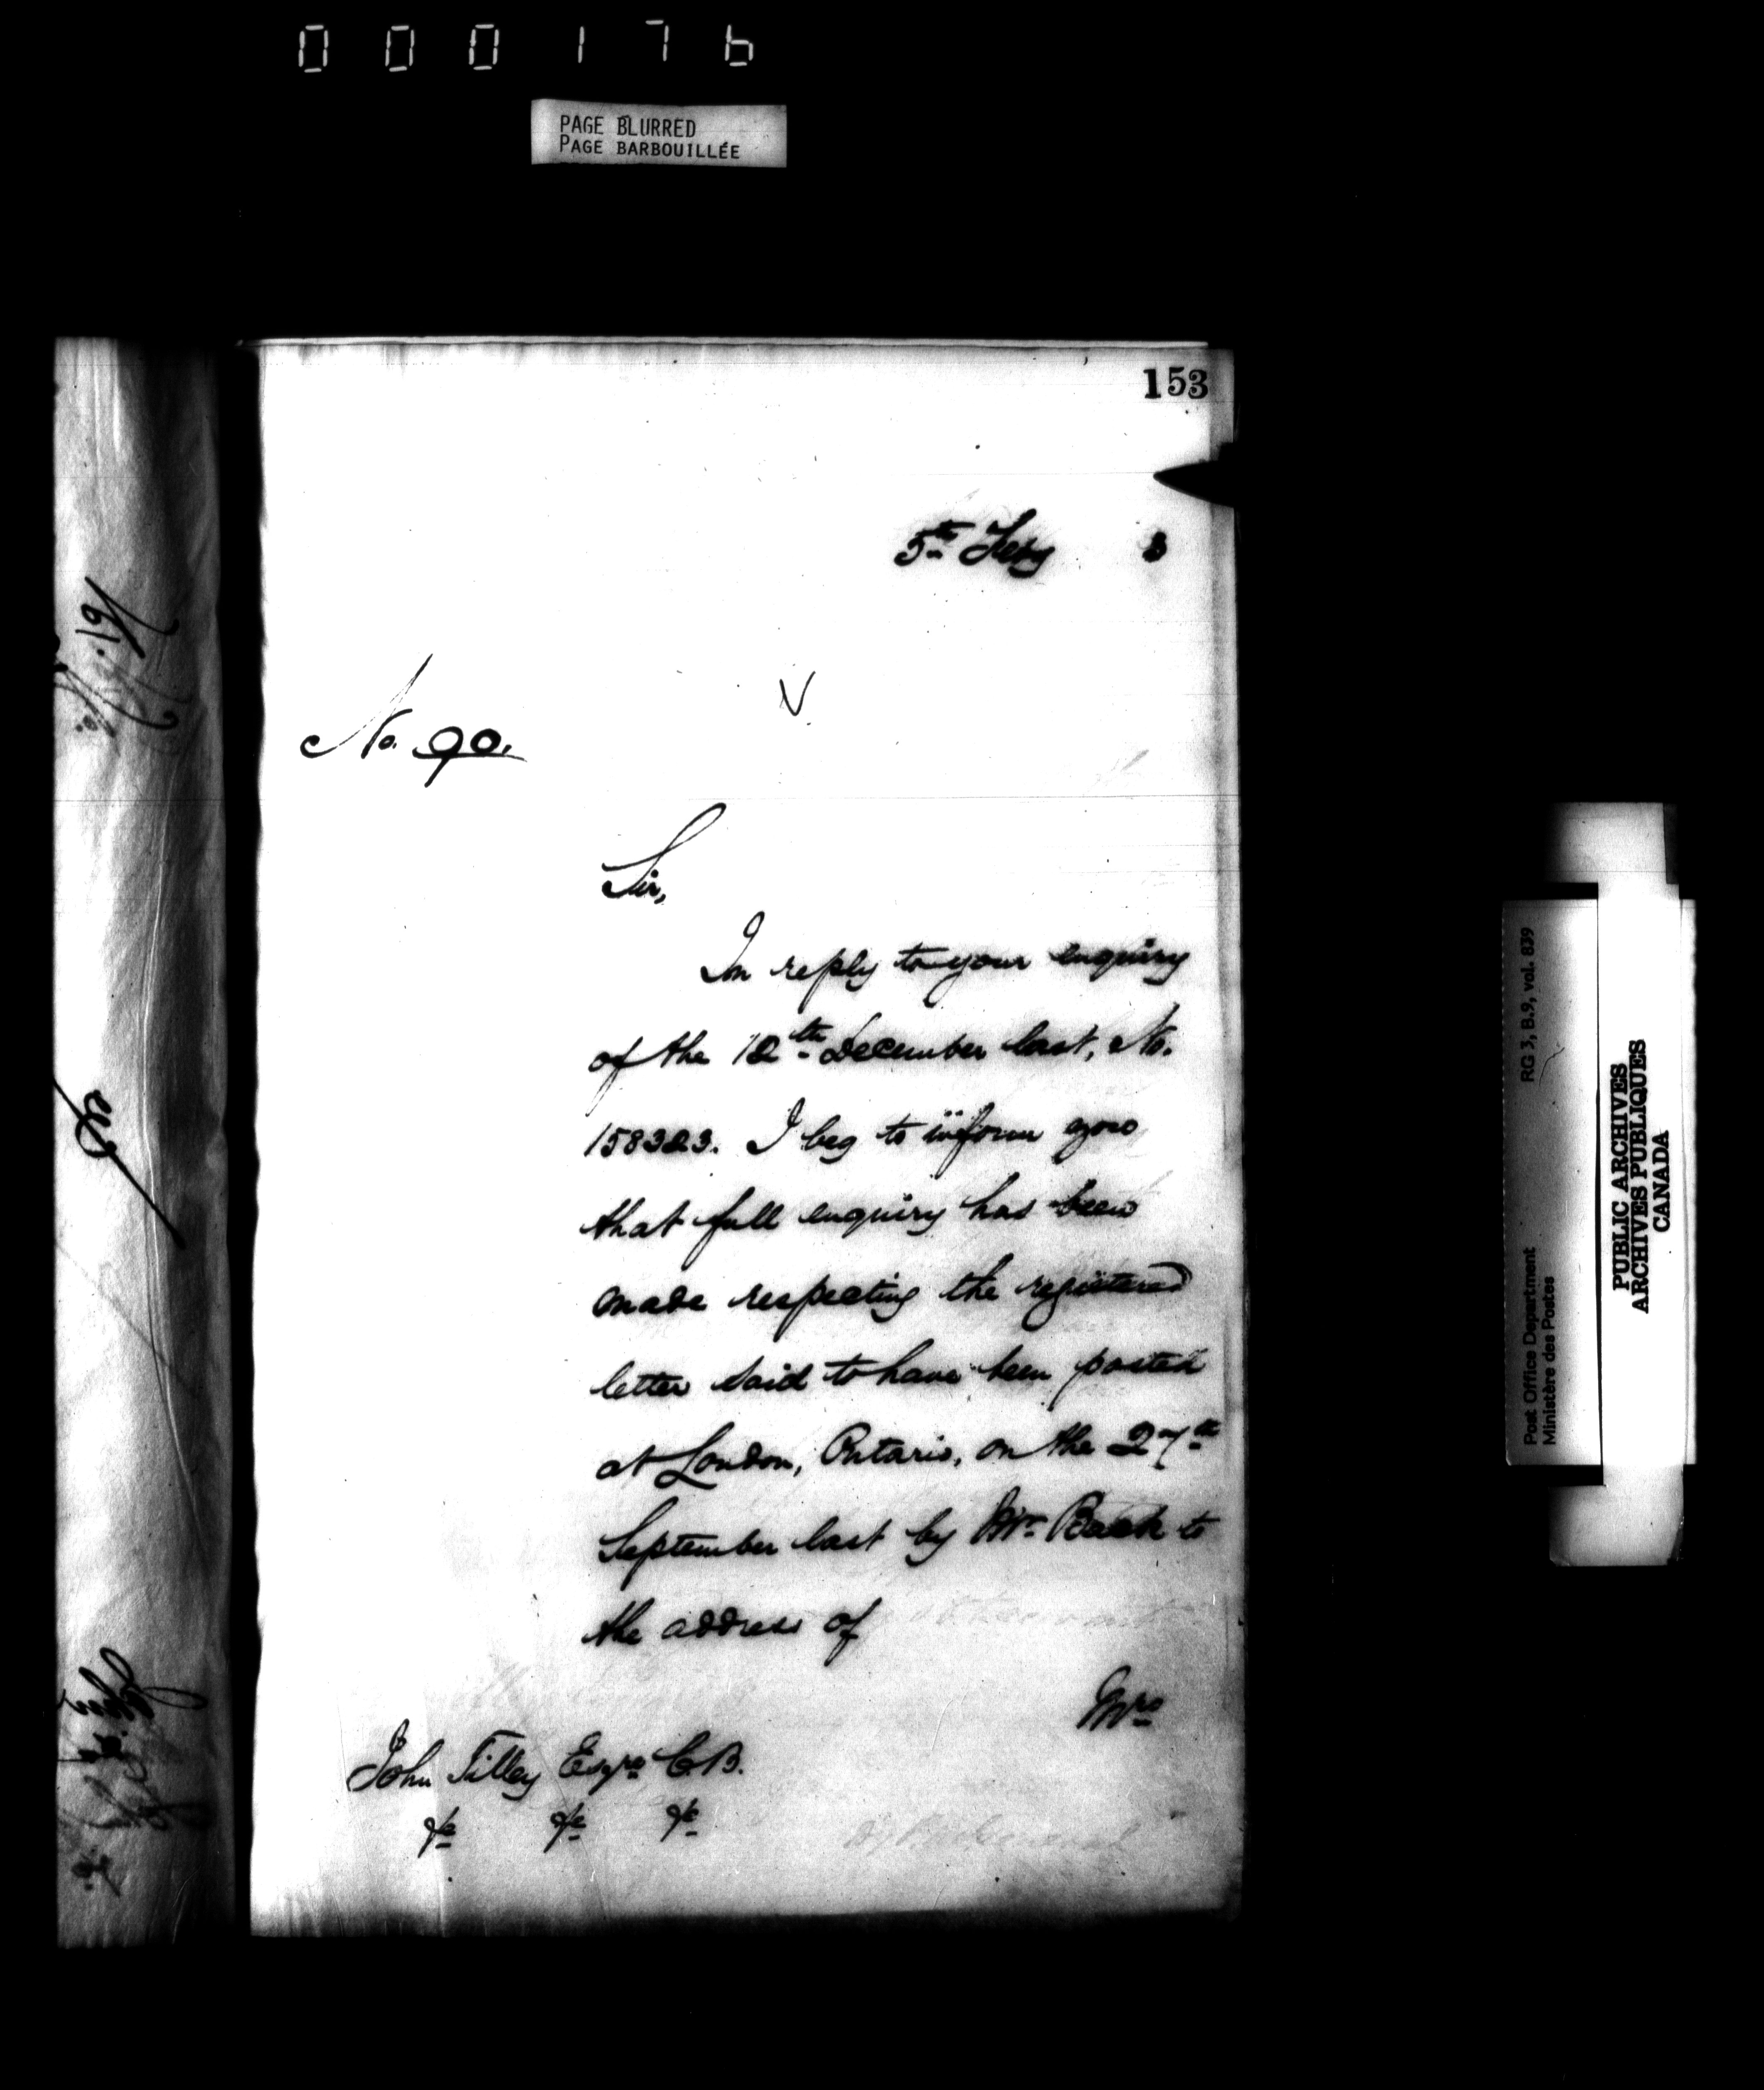 000176
PAGE BLURRED
PAGE BARBOUILLÉE
153
5th Feby 3
No. 90.
Sir,
In reply to your enquiry
of the 12th December last, No.
158323. I beg to inform you
that full enquiry has been
made respecting the registered
letter said to have been posted
at London, Ontario, on the 27th
September last by Mr. Back to
the address of
Mrs
John Tilley Esqre C.B.
&c &c &c
RG 3, B.9, vol. 839
Post Office Department
Ministère des Postes
PUBLIC ARCHIVES
ARCHIVES PUBLIQUES
CANADA